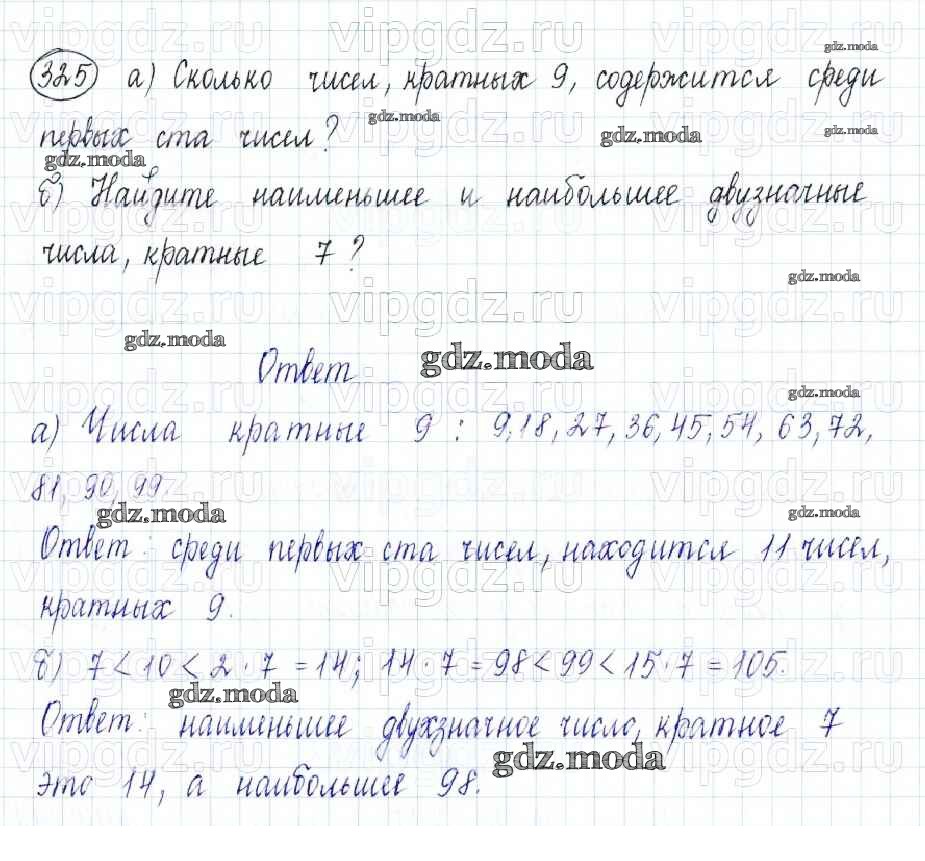 vipgdz.ru vipgdz.ru vipgdz.ru
gdz.moda
325 а) Сколько чисел, кратных 9, содержится среди
gdz.moda
vipgdz.ru vipgdz.ru vipgdz.ru
первых ста чисел?
gdz.moda gdz.moda
gdz.moda
б) Найдите наименьшее и наибольшее двузначные
числа, кратные 7?
gdz.moda
vipgdz.ru vipgdz.ru vipgdz.ru
gdz.moda
Ответ
gdz.moda
gdz.moda
а) Числа кратные 9 : 9,18,27,36,45,54, 63,72,
vipgdz.ru vipgdz.ru vipgdz.ru
81, 90, 99.
gdz.moda gdz.moda
Ответ: среди первых ста чисел, находится 11 чисел,
vipgdz.ru vipgdz.ru vipgdz.ru
кратных 9.
б) 7 < 10 < 2 · 7 = 14; 14 · 7 = 98 < 99 < 15 · 7 = 105.
gdz.moda
Ответ: наименьшее двухзначное число, кратное 7
gdz.moda
vipgdz.ru vipgdz.ru vipgdz.ru
это 14, а наибольшее 98.